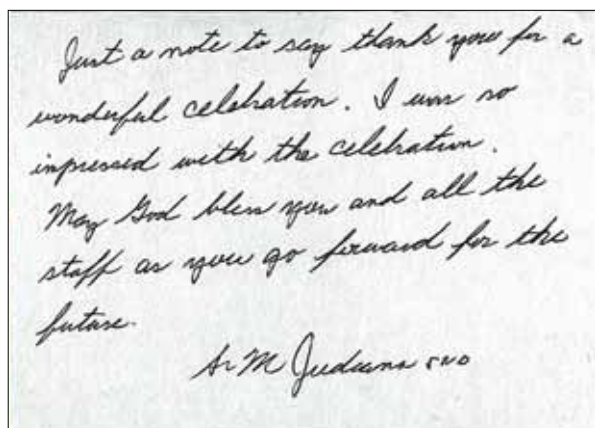 Just a note to say thank you for a
wonderful celebration. I was so
impressed with the celebration.
May God bless you and all the
staff as you go forward for the
future.
Sr M Judeana SND